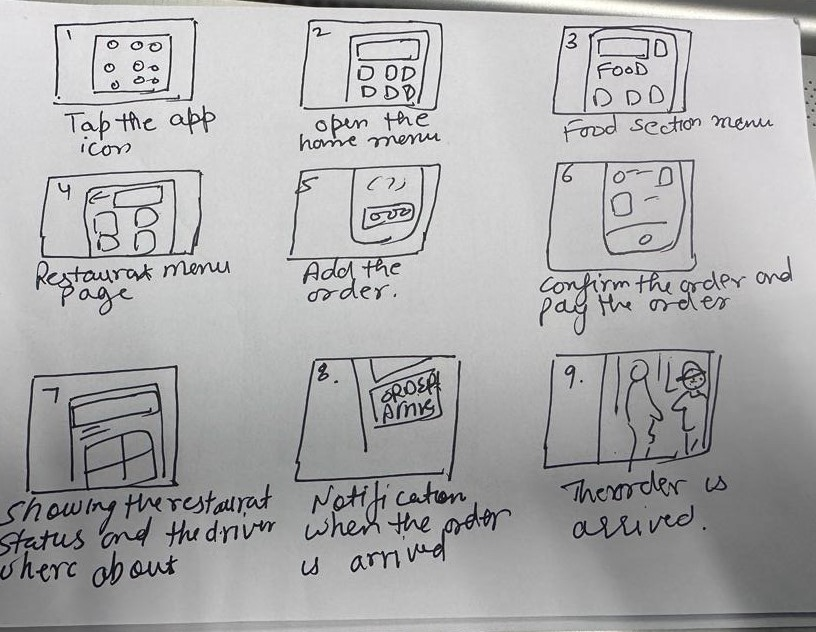 1
Tap the app
icon
2
open the
home menu
3
FOOD
Food section menu
4
Restaurat menu
page
5
(7)
Add the
order.
6
confirm the order and
pay the order
7
showing the restaurat
status and the driver
where about
8.
ORDER
Notification
when the order
is arrived
9.
The order is
arrived.